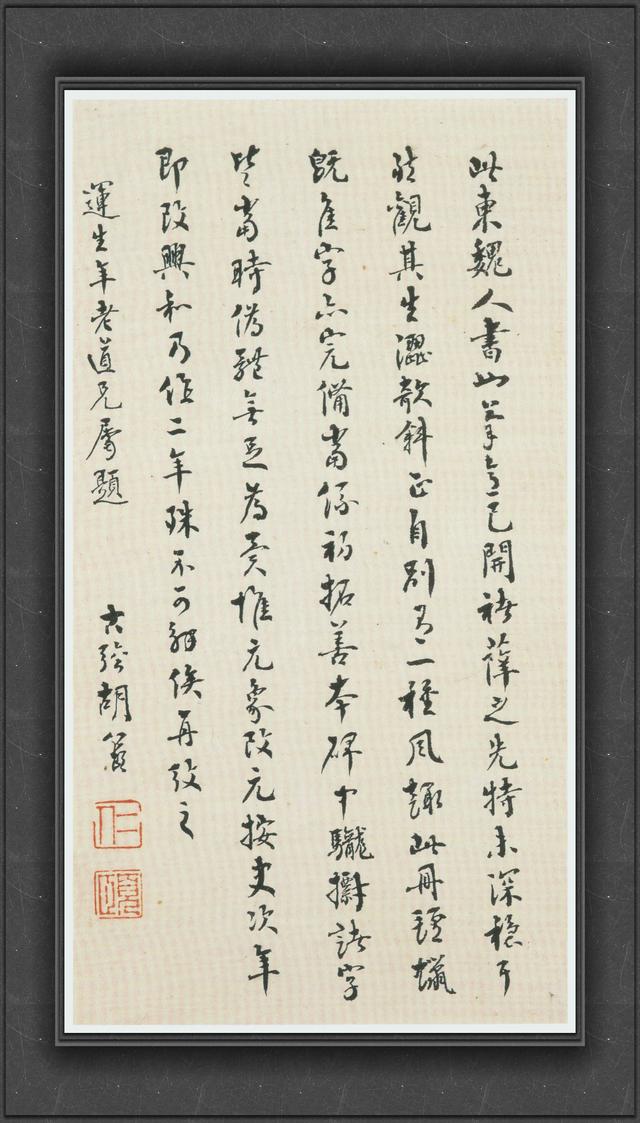 此東魏人書筆意已開褚薛之先特未深穩耳
然觀其生澀欹斜正自別有一種風趣此冊氊蠟
既佳字亦完備當係初拓善本碑中諸字
皆當時偽體無足為異惟元象改元按史次年
即改興和乃作二年殊不可解俟再攷之
運生年老道兄屬題
胡